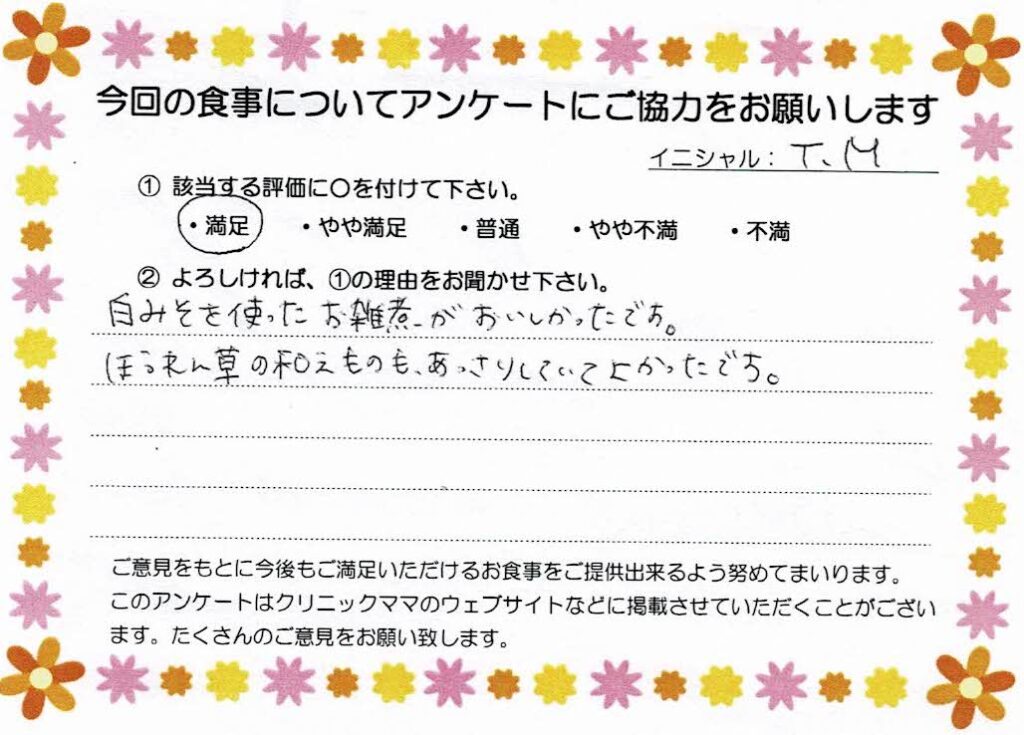 今回の食事についてアンケートにご協力をお願いします
イニシャル：T.M
① 該当する評価に〇を付けて下さい。
・満足 ・やや満足 ・普通 ・やや不満 ・不満
② よろしければ、①の理由をお聞かせ下さい。
白みそを使ったお雑煮がおいしかったです。
ほうれん草の和えものも、あっさりしていてよかったです。
ご意見をもとに今後もご満足いただけるお食事をご提供出来るよう努めてまいります。
このアンケートはクリニックママのウェブサイトなどに掲載させていただくことがござい
ます。たくさんのご意見をお願い致します。